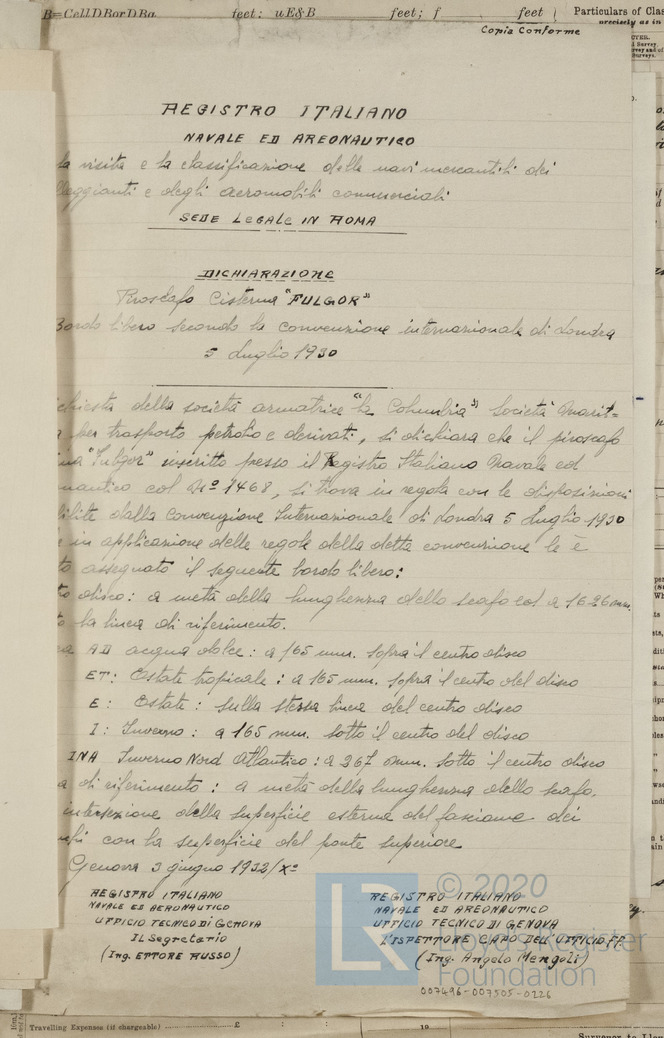 B=Cell D Bor D Ba feet: uE&B feet; f feet
Particulars of Clas
precisely as in
Copia Conforme
REGISTRO ITALIANO
NAVALE ED AREONAUTICO
la visita e la classificazione delle navi mercantili dei
lleggianti e degli aeromobili commerciali
SEDE LEGALE IN ROMA
DICHIARAZIONE
Piroscafo Cisterna "FULGOR"
Bordo libero secondo la convenzione internazionale di Londra
5 Luglio 1930
chiesta della società armatrice "la Columbia" Società Marit=
a per trasporto petrolio e derivati, si dichiara che il piroscafo
rna "Fulgor" inscritto presso il Registro Italiano Navale ed
nautico col Nº 1468, si trova in regola con le disposizioni
bilite dalla Convenzione Internazionale di Londra 5 Luglio 1930
e in applicazione delle regole della detta convenzione le è
to assegnato il seguente bordo libero:
tro disco: a metà della lunghezza dello scafo ed a 1626 mm.
to la linea di riferimento.
ea AD acqua dolce: a 165 mm. sopra il centro disco
ET: Estate tropicale: a 165 mm. sopra il centro del disco
E: Estate: sulla stessa linea del centro disco
I: Inverno: a 165 mm. sotto il centro del disco
INA Inverno Nord Atlantico: a 267 mm. sotto il centro disco
a di riferimento: a metà della lunghezza dello scafo.
intersezione della superficie esterna del fasciame dei
chi con la superficie del ponte superiore
Genova 3 giugno 1932/Xº
REGISTRO ITALIANO
NAVALE ED AERONAUTICO
UFFICIO TECNICO DI GENOVA
IL Segretario
(Ing. ETTORE RUSSO)
REGISTRO ITALIANO
NAVALE ED AREONAUTICO
UFFICIO TECNICO DI GENOVA
L'ISPETTORE CAPO DELL'UFFICIO FF
(Ing. Angelo Mengoli)
LR
© 2020
Lloyd's Register
Foundation
007496-007505-0226
Travelling Expenses (if chargeable) £ : : 19
Surveyor to Llo